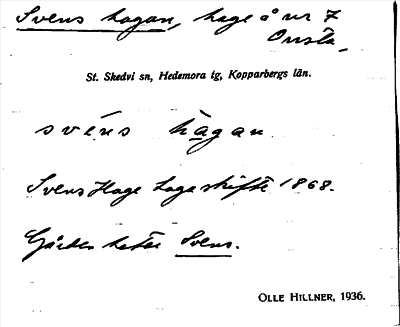 Svens hagan, hage å nr 7
Onsta,
St. Skedvi sn, Hedemora tg, Kopparbergs län.
svéns hagan
Svens Hage Laga skifte 1868.
Gården heter Svens.
OLLE HILLNER, 1936.